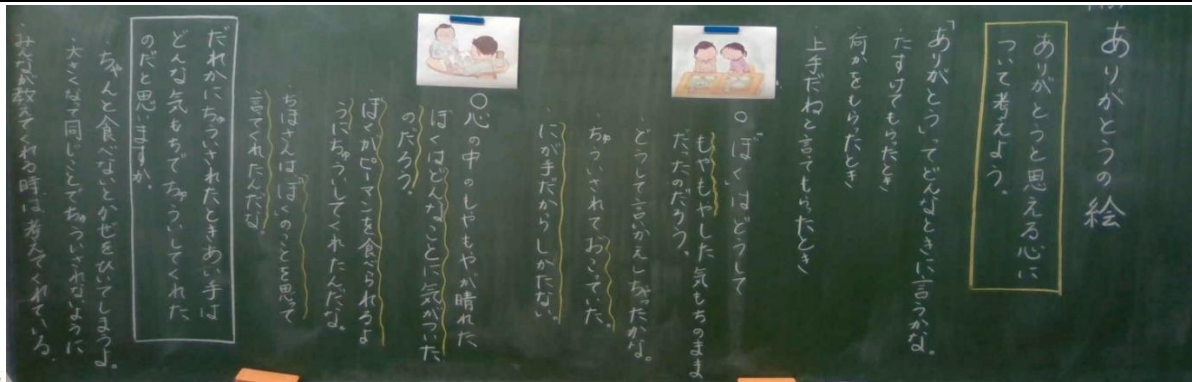 ありがとうの絵
ありがとうと思える心に
ついて考えよう。
「ありがとう」ってどんなときに言うかな。
・たすけてもらったとき
・何かをもらったとき
・上手だねと言ってもらったとき
○「ぼく」はどうして
もやもやした気もちのまま
だったのだろう。
・どうして言いかえしちゃったかな。
・ちゅういされておこっていた。
・にが手だからしかたない。
◎心の中のもやもやが晴れた
ぼくはどんなことに気がついた
のだろう。
・ぼくがピーマンを食べられるよ
うにちゅういしてくれたんだな。
・ちほさんは「ぼく」のことを思って
言ってくれたんだな
だれかにちゅういされたときあい手は
どんな気もちでちゅういしてくれた
のだと思いますか。
・ちゃんと食べないとかぜをひいてしまうよ。
・大きくなって同じことでちゅういされないように
・みんなが教えてくれる時は、考えてくれている。